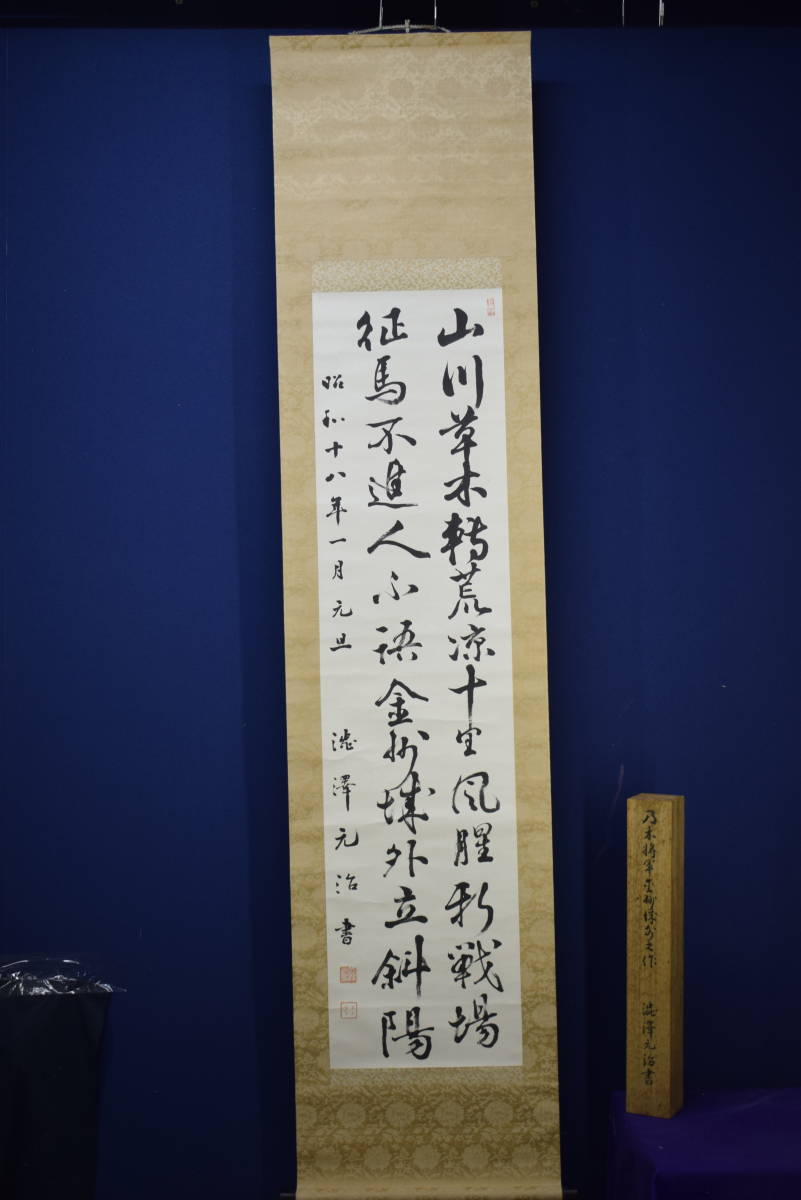 山川草木轉荒凉十里風腥新戰場
征馬不進人不語金州城外立斜陽
昭和十八年一月元旦　澁澤元治書
乃木将軍金州城外之作　澁澤元治書